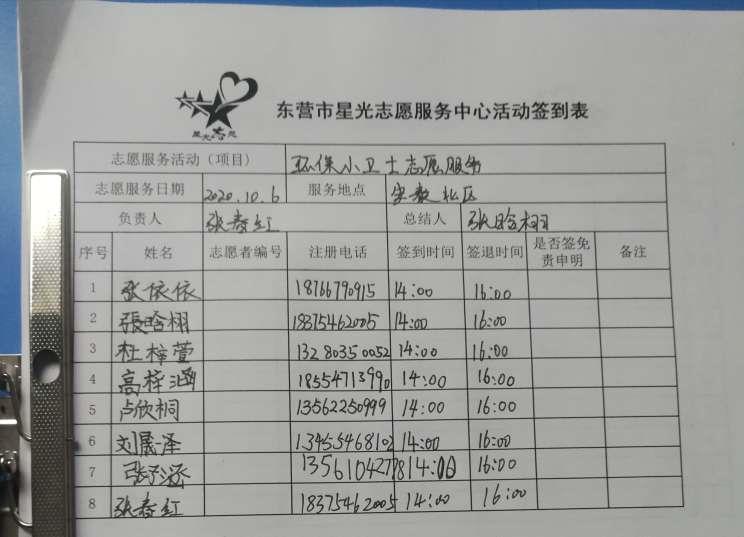 星光志愿
东营市星光志愿服务中心活动签到表
志愿服务活动（项目） 环保小卫士志愿服务
志愿服务日期 2020.10.6 服务地点 安泰北区
负责人 张春红 总结人 张晗栩
序号 姓名 志愿者编号 注册电话 签到时间 签退时间 是否签免责申明 备注
1 张依依 18766790915 14:00 16:00
2 張晗栩 18375462005 14:00 16:00
3 杜梓萱 13280350052 14:00 16:00
4 高梓涵 18554713990 14:00 16:00
5 卢欣桐 13562250999 14:00 16:00
6 刘晟泽 13455468102 14:00 16:00
7 张予涵 13561042778 14:00 16:00
8 张春红 18375462005 14:00 16:00